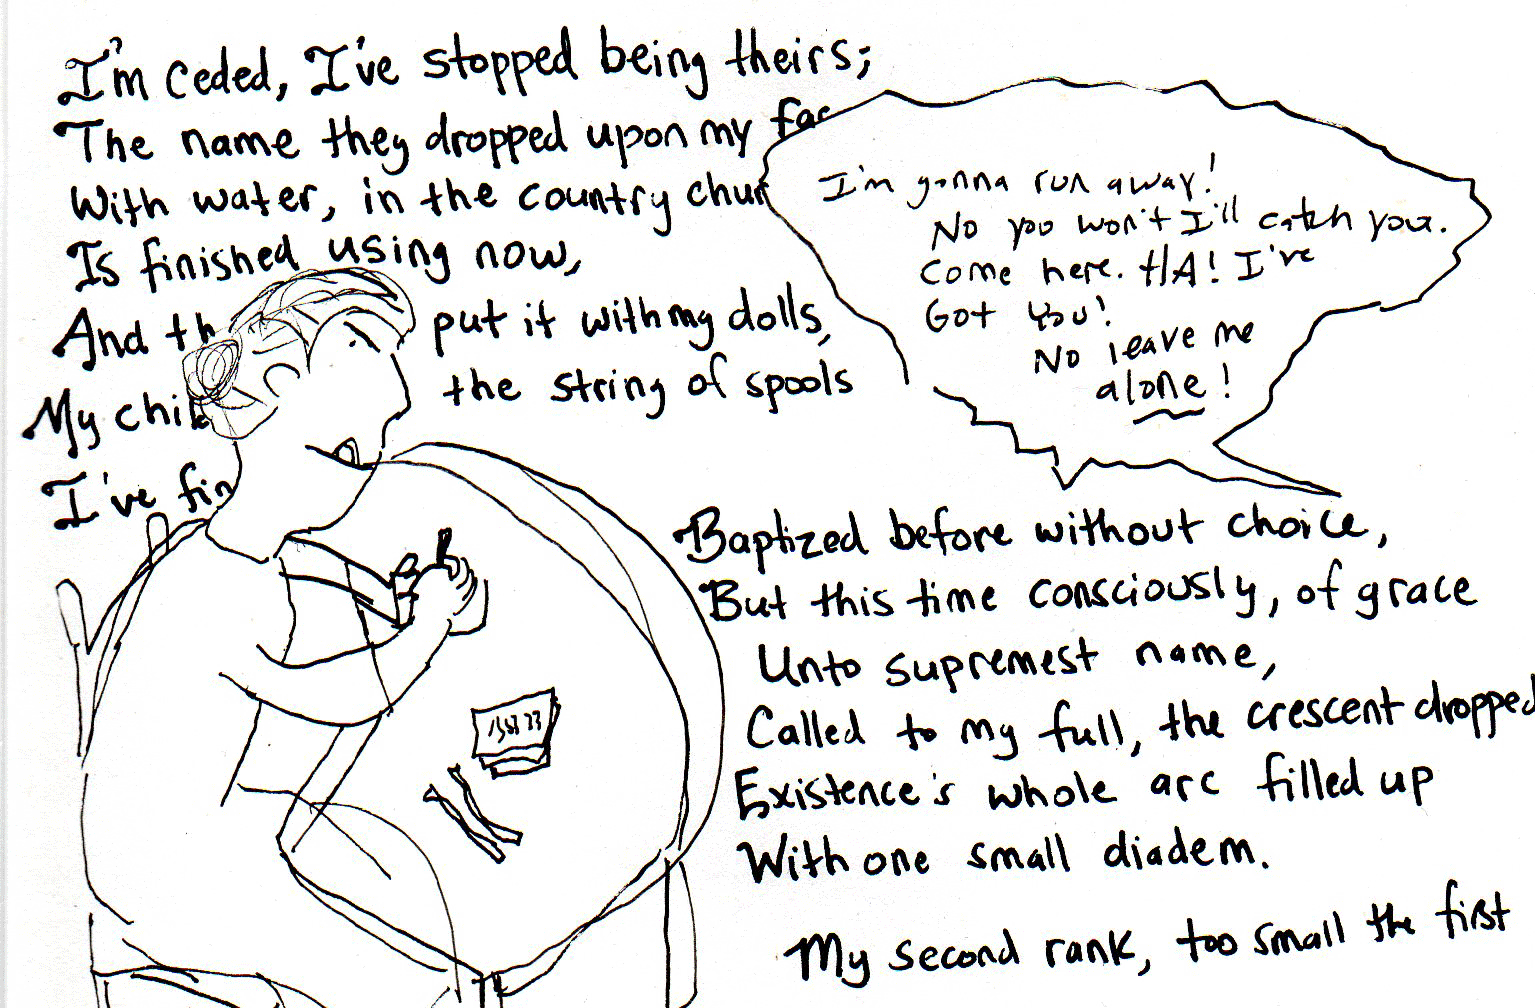 I'm ceded, I've stopped being theirs;
The name they dropped upon my fac
With water, in the country chur
Is finished using now,
And th put it with my dolls,
My chil the string of spools
I've fin
I'm gonna run away!
No you won't I'll catch you.
Come here. HA! I've
Got you!
No leave me
alone!
Baptized before without choice,
But this time consciously, of grace
Unto supremest name,
Called to my full, the crescent dropped
Existence's whole arc filled up
With one small diadem.
My second rank, too small the first